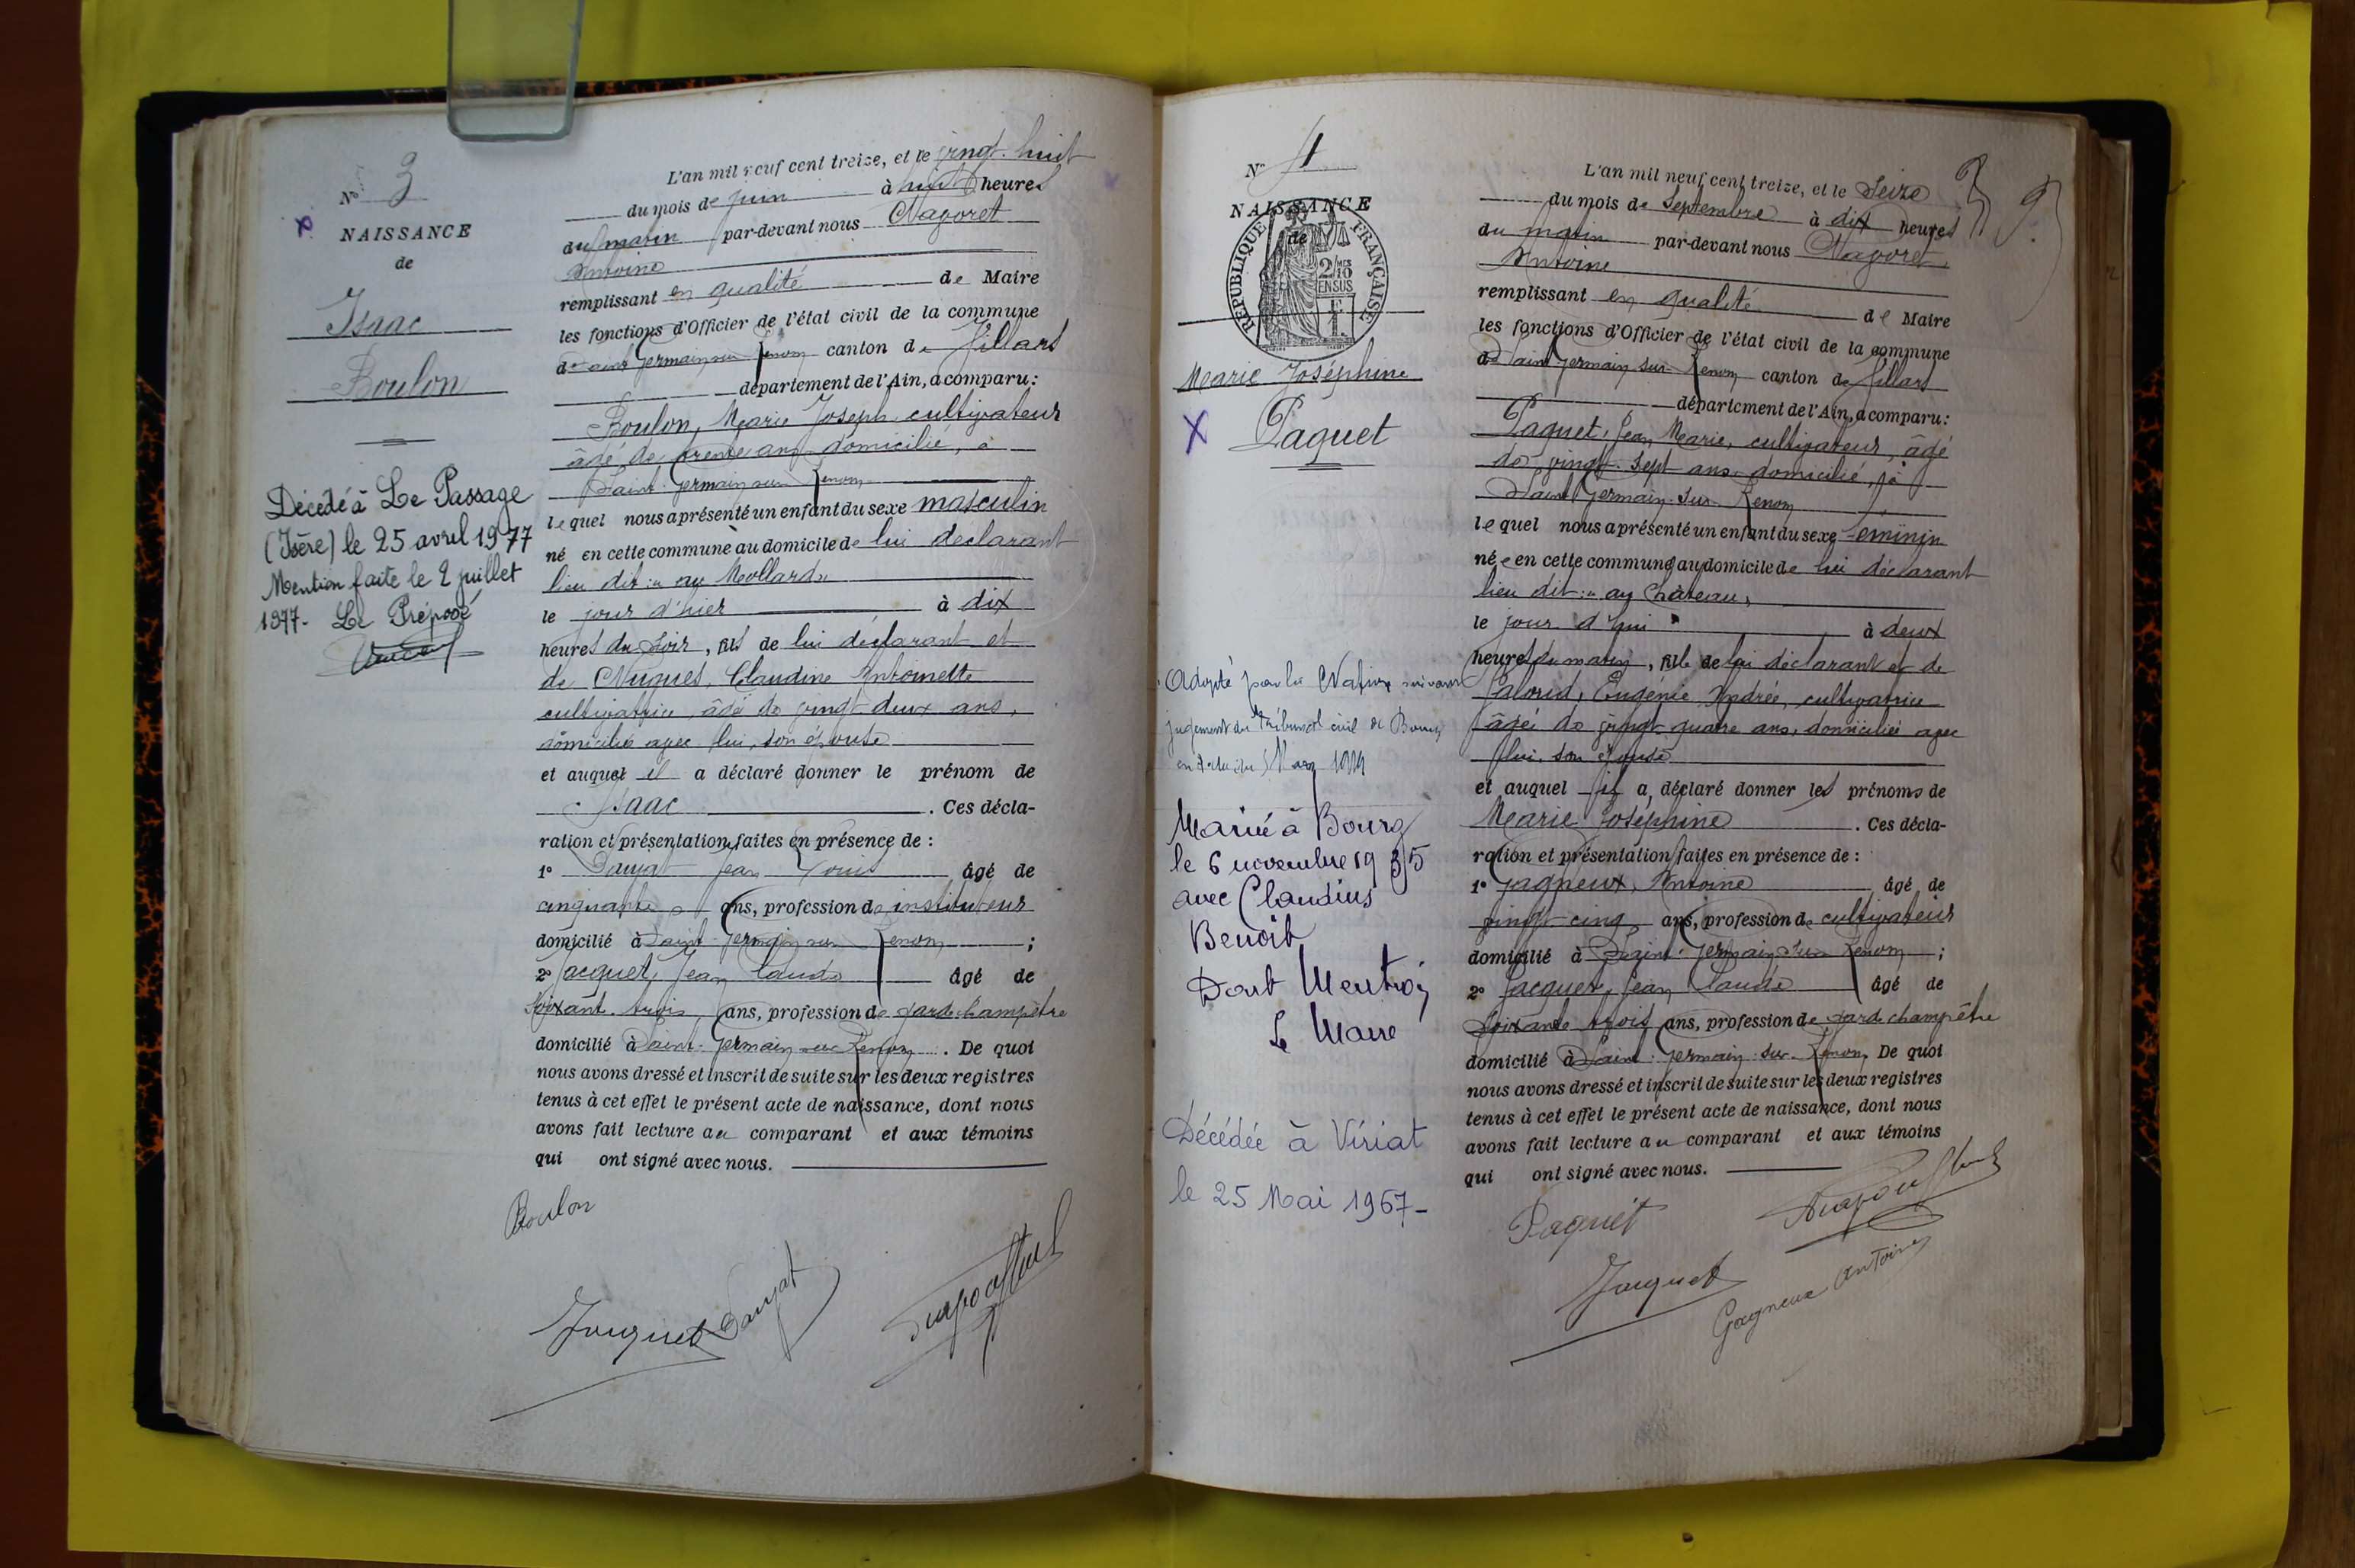 N° 3
NAISSANCE
de
Isaac
Boulon
Décédé à Le Passage
(Isère) le 25 avril 1977
Mention faite le 2 juillet
1977 - Le Préposé
L'an mil neuf cent treize, et le vingt-huit
du mois de juin à huit heures
du matin par-devant nous
Antoine
remplissant en qualité de Maire
les fonctions d'Officier de l'état civil de la commune
de Saint Germain sur Renon canton de Villars
département de l'Ain, a comparu:
Boulon, Marie Joseph cultivateur
âgé de trente ans domicilié, à
Saint-Germain sur Renon
lequel nous a présenté un enfant du sexe masculin
né en cette commune au domicile de lui déclarant
lieu dit: "au Mollard"
le jour d'hier à dix
heures du soir, fils de lui déclarant et
de Nugues, Claudine Antoinette
cultivatrice, âgé de vingt-deux ans,
domiciliée avec lui, son épouse
et auquel il a déclaré donner le prénom de
Isaac. Ces décla-
ration et présentation faites en présence de :
1° Daujat Jean Louis âgé de
cinquante ans, profession de instituteur
domicilié à Saint-Germain sur Renon ;
2° Jacquet, Jean Claude âgé de
soixant-trois ans, profession de garde champêtre
domicilié à Saint-Germain sur Renon. De quoi
nous avons dressé et inscrit de suite sur les deux registres
tenus à cet effet le présent acte de naissance, dont nous
avons fait lecture au comparant et aux témoins
qui ont signé avec nous.
Boulon
Jacquet Daujat
N° 4
NAISSANCE
de
RÉPUBLIQUE FRANÇAISE
2/10 MES
EN SUS
1 F
Marie Joséphine
Paquet
Adopté par la Nation suivant
jugement du Tribunal civil de Bourg
en date du
Mariée à Bourg
le 6 novembre 1935
avec Claudius
Benoit
Dont Mention
Le Maire
Décédée à Viriat
le 25 Mai 1967-
L'an mil neuf cent treize, et le Seize
du mois de Septembre à dix heures
du matin par-devant nous
Antoine
remplissant en qualité de Maire
les fonctions d'Officier de l'état civil de la commune
de Saint Germain sur Renon canton de Villars
département de l'Ain, a comparu:
Paquet, Jean Marie, cultivateur, âgé
de vingt-sept ans domicilié, à
Saint Germain-sur-Renon
lequel nous a présenté un enfant du sexe féminin
née en cette commune au domicile de lui déclarant
lieu dit: "au Château"
le jour d'hui à deux
heures du matin, fille de lui déclarant et de
Eugénie Andrée, cultivatrice
âgée de vingt-quatre ans, domiciliée avec
lui, son épouse
et auquel il a déclaré donner les prénoms de
Marie Joséphine. Ces décla-
ration et présentation faites en présence de :
1° Gagneux, Antoine âgé de
vingt-cinq ans, profession de cultivateur
domicilié à Saint-Germain sur Renon ;
2° Jacquet, Jean Claude âgé de
soixante trois ans, profession de garde champêtre
domicilié à Saint-Germain-sur-Renon. De quoi
nous avons dressé et inscrit de suite sur les deux registres
tenus à cet effet le présent acte de naissance, dont nous
avons fait lecture au comparant et aux témoins
qui ont signé avec nous.
Paquet
Jacquet
Gagneux Antoine